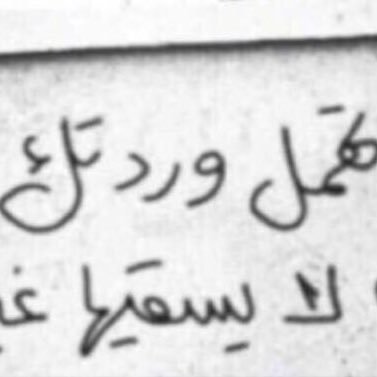 تهمل وردتك
لا يسقيها